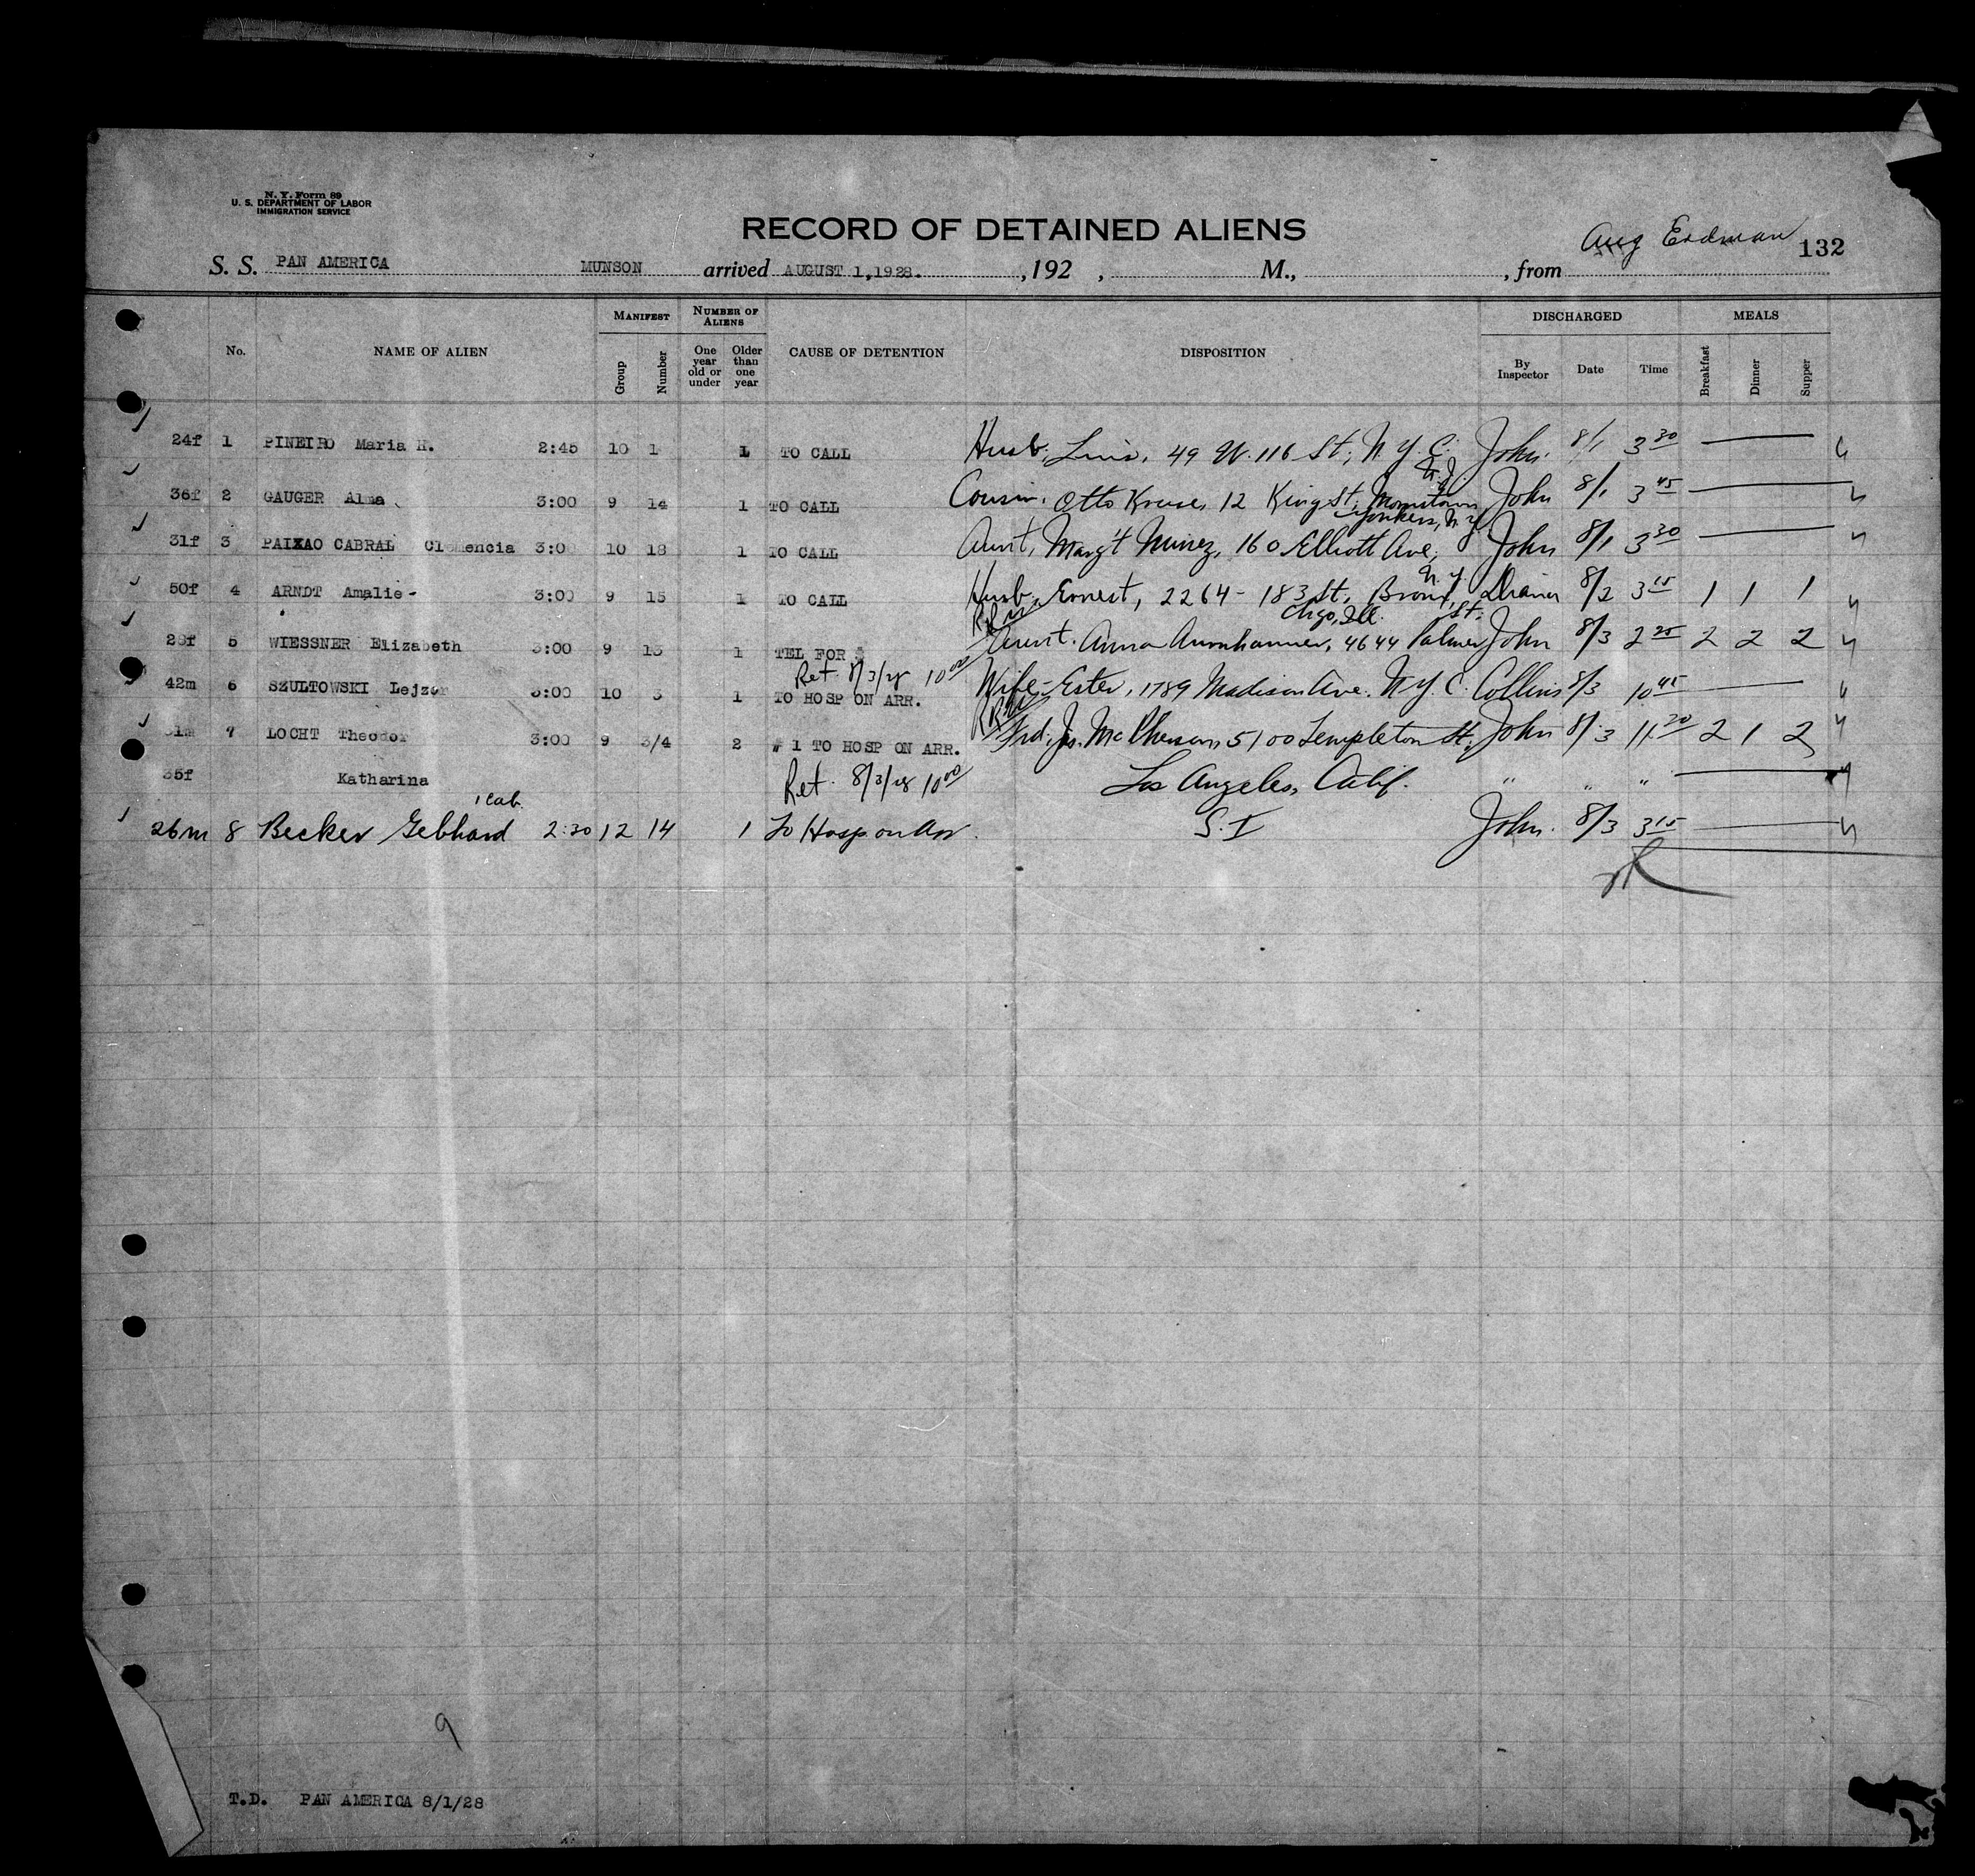 N. Y. Form 89
U. S. DEPARTMENT OF LABOR
IMMIGRATION SERVICE
RECORD OF DETAINED ALIENS
Aug Erdman 132
S. S. PAN AMERICA MUNSON arrived AUGUST 1,1928. ,192 , M., , from
No. NAME OF ALIEN MANIFEST Group Number NUMBER OF ALIENS One year old or under Older than one year CAUSE OF DETENTION DISPOSITION DISCHARGED By Inspector Date Time MEALS Breakfast Dinner Supper
24f 1 PINEIRO Maria H. 2:45 10 1 1 TO CALL Husb, Luis, 49 W. 116 St, N.Y.C. John. 8/1 3 30
N.J.
36f 2 GAUGER Alma 3:00 9 14 1 TO CALL Cousin. Otto Kruse, 12 King St, Morristown John 8/1 3 45
Yonkers, N.Y.
31f 3 PAIXAO CABRAL Clemencia 3:00 10 18 1 TO CALL Aunt, Marg't Nunez, 160 Elliott Ave, John 8/1 3 30
N.Y.
50f 4 ARNDT Amalie- 3:00 9 15 1 TO CALL Husb, Ernest, 2264-183 St, Bronx, 8/2 3 15 1 1 1
Chgo, Ill. St.
29f 5 WIESSNER Elizabeth 3:00 9 13 1 TEL FOR $ Aunt. Anna 4644 Palmer John 8/3 2 25 2 2 2
Ret. 8/3/28 10 00
42m 6 SZULTOWSKI Lejzor 3:00 10 3 1 TO HOSP ON ARR. Wife-Ester, 1789 Madison Ave. N.Y.C. Collins 8/3 10 45
31m 7 LOCHT Theodor 3:00 9 3/4 2 #1 TO HOSP ON ARR. Frd, Js. McPherson, 5100 Templeton St, John 8/3 11 20 2 1 2
35f Katharina Ret. 8/3/28 10 00 Los Angeles, Calif. " " "
1 Cab.
26m 8 Becker Gebhard 2:30 12 14 1 To Hosp on Arr. S.I John. 8/3 3 15
9
T.D. PAN AMERICA 8/1/28